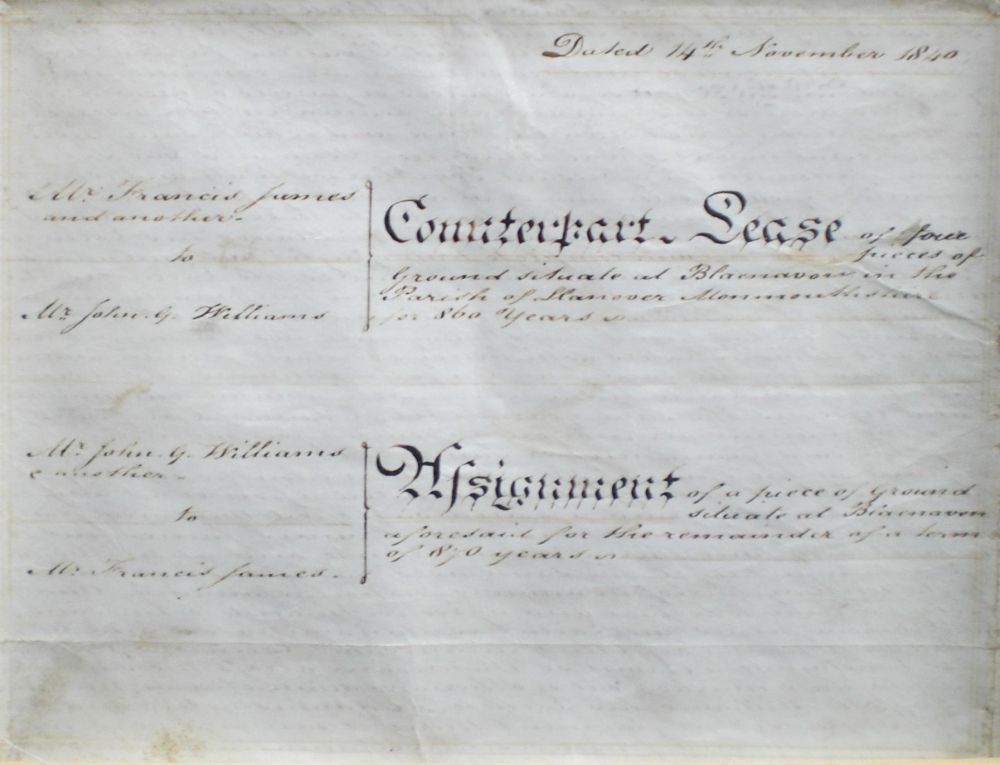 Dated 14th November 1840
Mr Francis James
and another
to
Mr John G. Williams
Counterpart Lease of four
pieces of
Ground situate at Blaenavon in the
Parish of Llanover Monmouthshire
for 860 Years
Mr John G. Williams
& another
to
Mr Francis James
Assignment of a piece of Ground
situate at Blaenavon
aforesaid for the remainder of a term
of 870 years